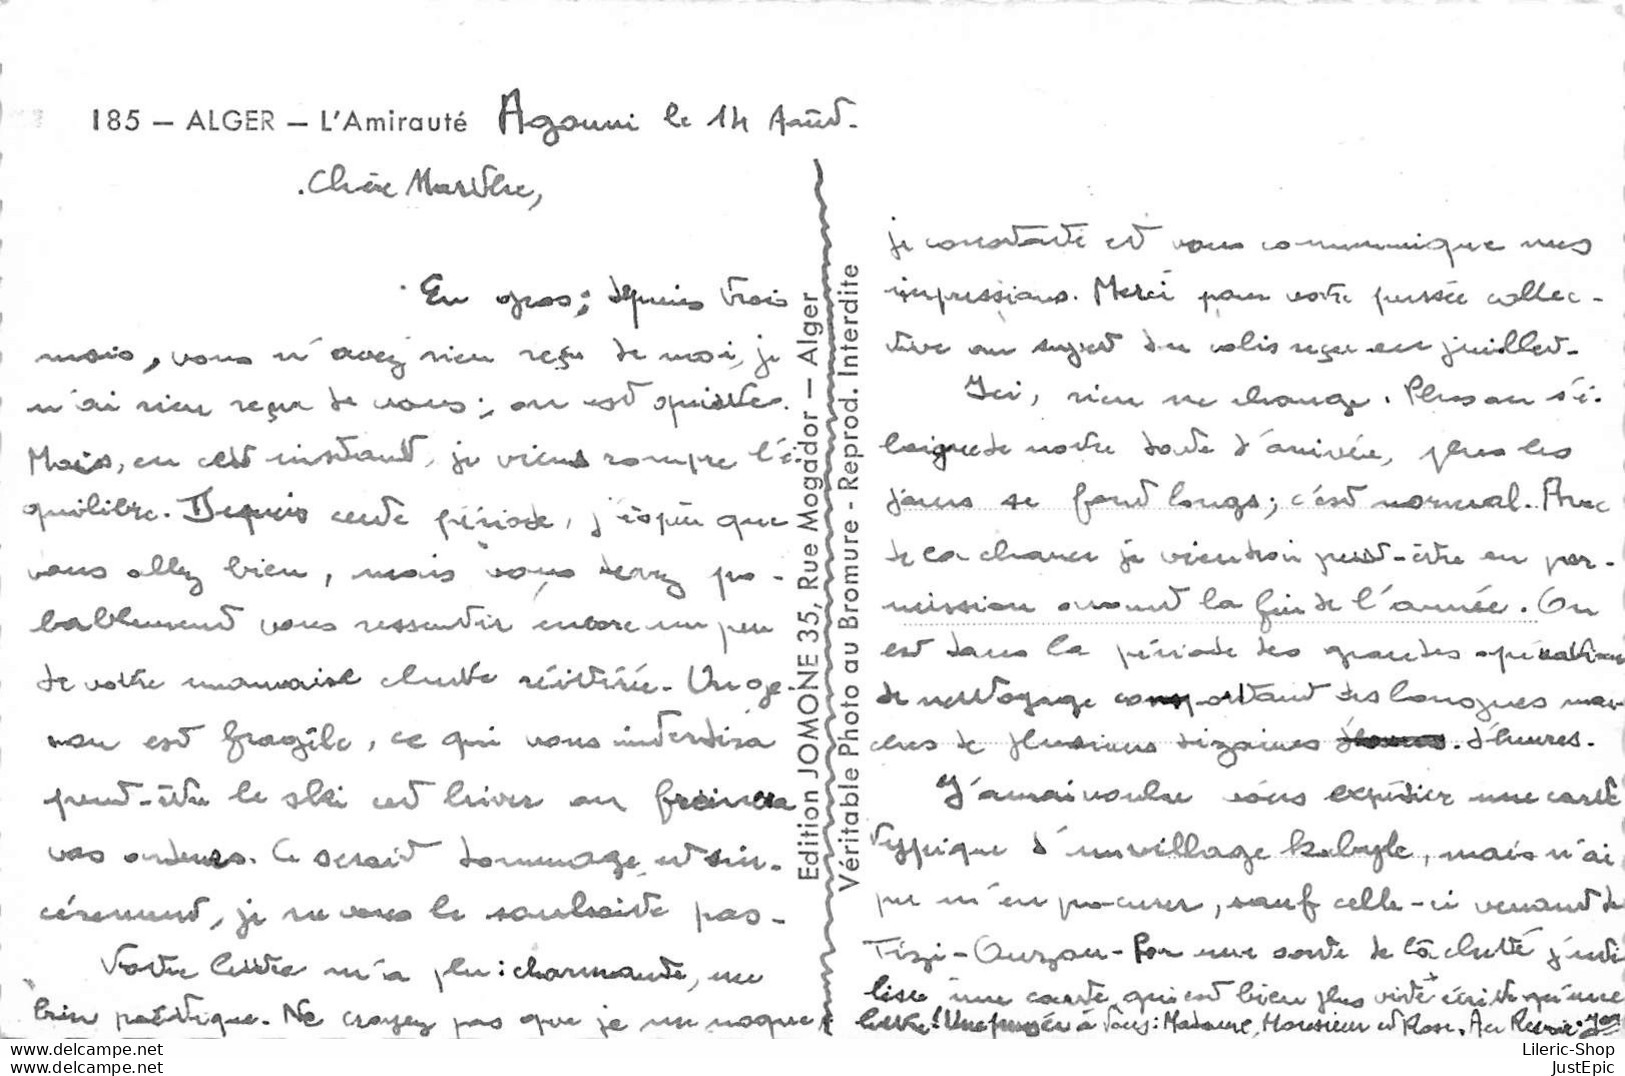 185 – ALGER – L'Amirauté Agouni le 14 Août.
Chère Marthe,
En gros, depuis trois
mois, vous n'avez rien reçu de moi, je
n'ai rien reçu de vous; on est quittes.
Mais, en cet instant, je viens rompre l'é-
quilibre. Depuis cette période, j'espère que
vous allez bien, mais vous devez pro-
bablement vous ressentir encore un peu
de votre mauvaise chute réitérée. Un ge-
nou est fragile, ce qui vous interdira
peut-être le ski cet hiver ou freinera
vos ardeurs. Ce serait dommage et sin-
cèrement, je ne vous le souhaite pas-
Votre lettre m'a plu: charmante,
bien poétique. Ne croyez pas que je me moque;
je constate et vous communique mes
impressions. Merci pour votre pensée collec-
tive au sujet du colis reçu en juillet.
Ici, rien ne change. Plus on s'é-
loigne de notre date d'arrivée, plus les
jours se font longs; c'est normal. Avec
de la chance je viendrai peut-être en per-
mission avant la fin de l'année. On
est dans la période des grandes opérations
de nettoyage comportant des longues mar-
ches de plusieurs dizaines d'heures.
J'aurai voulu vous expédier une carte
typique d'un village kabyle, mais n'ai
pu m'en procurer, sauf celle-ci venant de
Tizi-Ouzou- Par une sorte de lâcheté j'uti
lise une carte, qui est bien plus vite écrite qu'une
lettre! Une pensée à tous: Madame, Monsieur et Rose. Au Revoir.
Edition JOMONE 35, Rue Mogador – Alger
Véritable Photo au Bromure - Reprod. Interdite
Lileric-Shop
JustEpic